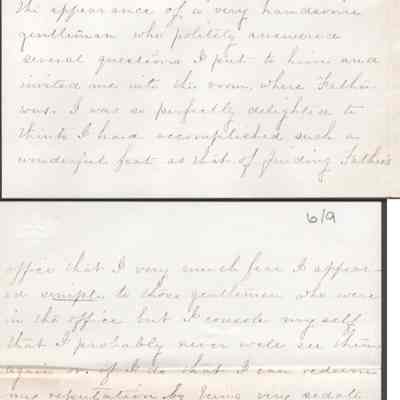 the appearance of a very handsome
gentleman who politely answered
several questions I put to him and
invited me into the room where Father
was. I was so perfectly delighted to
think I had accomplished such a
wonderful feat as that of finding Father's
6/9
office that I very much fear I appear-
ed simple to those gentlemen who were
in the office but I console myself
that I probably never will see them
again or if I do that I can redeem
my reputation by being very sedate